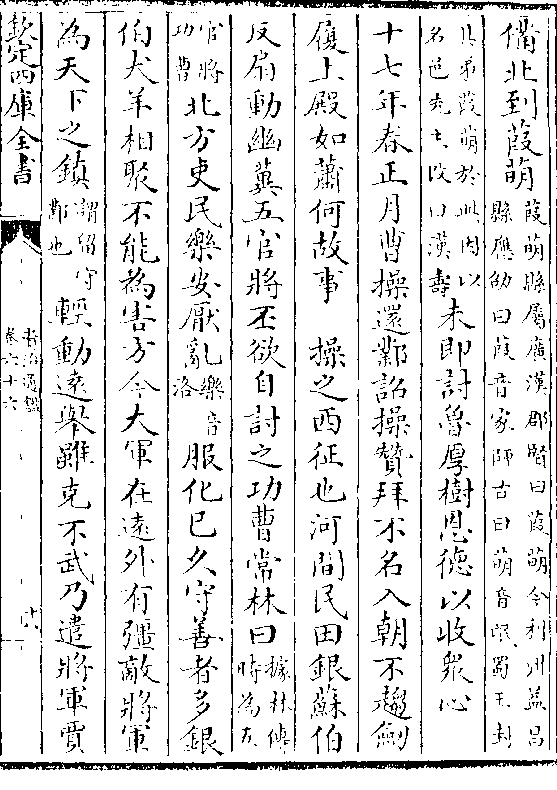 備北到葭萌葭萌縣屬廣漢郡賢曰葭萌今利州益昌縣應劭曰葭音家師古曰萌音氓蜀王封
其弟葭萌於此因以名邑先主改曰漢壽未即討魯厚樹恩德以收衆心
十七年春正月曹操還鄴詔操贊拜不名入朝不趨劍
履上殿如蕭何故事　操之西征也河間民田銀蘇伯
反扇動幽冀五官將丕欲自討之功曹常林曰據林傳時為五
官將功曹北方吏民樂安厭亂樂音洛服化已久守善者多銀
伯犬羊相聚不能為害方今大軍在遠外有彊敵將軍
為天下之鎮謂留守鄴也輕動遠舉雖克不武乃遣將軍賈
欽定四庫全書
資治通鑑
卷六十六